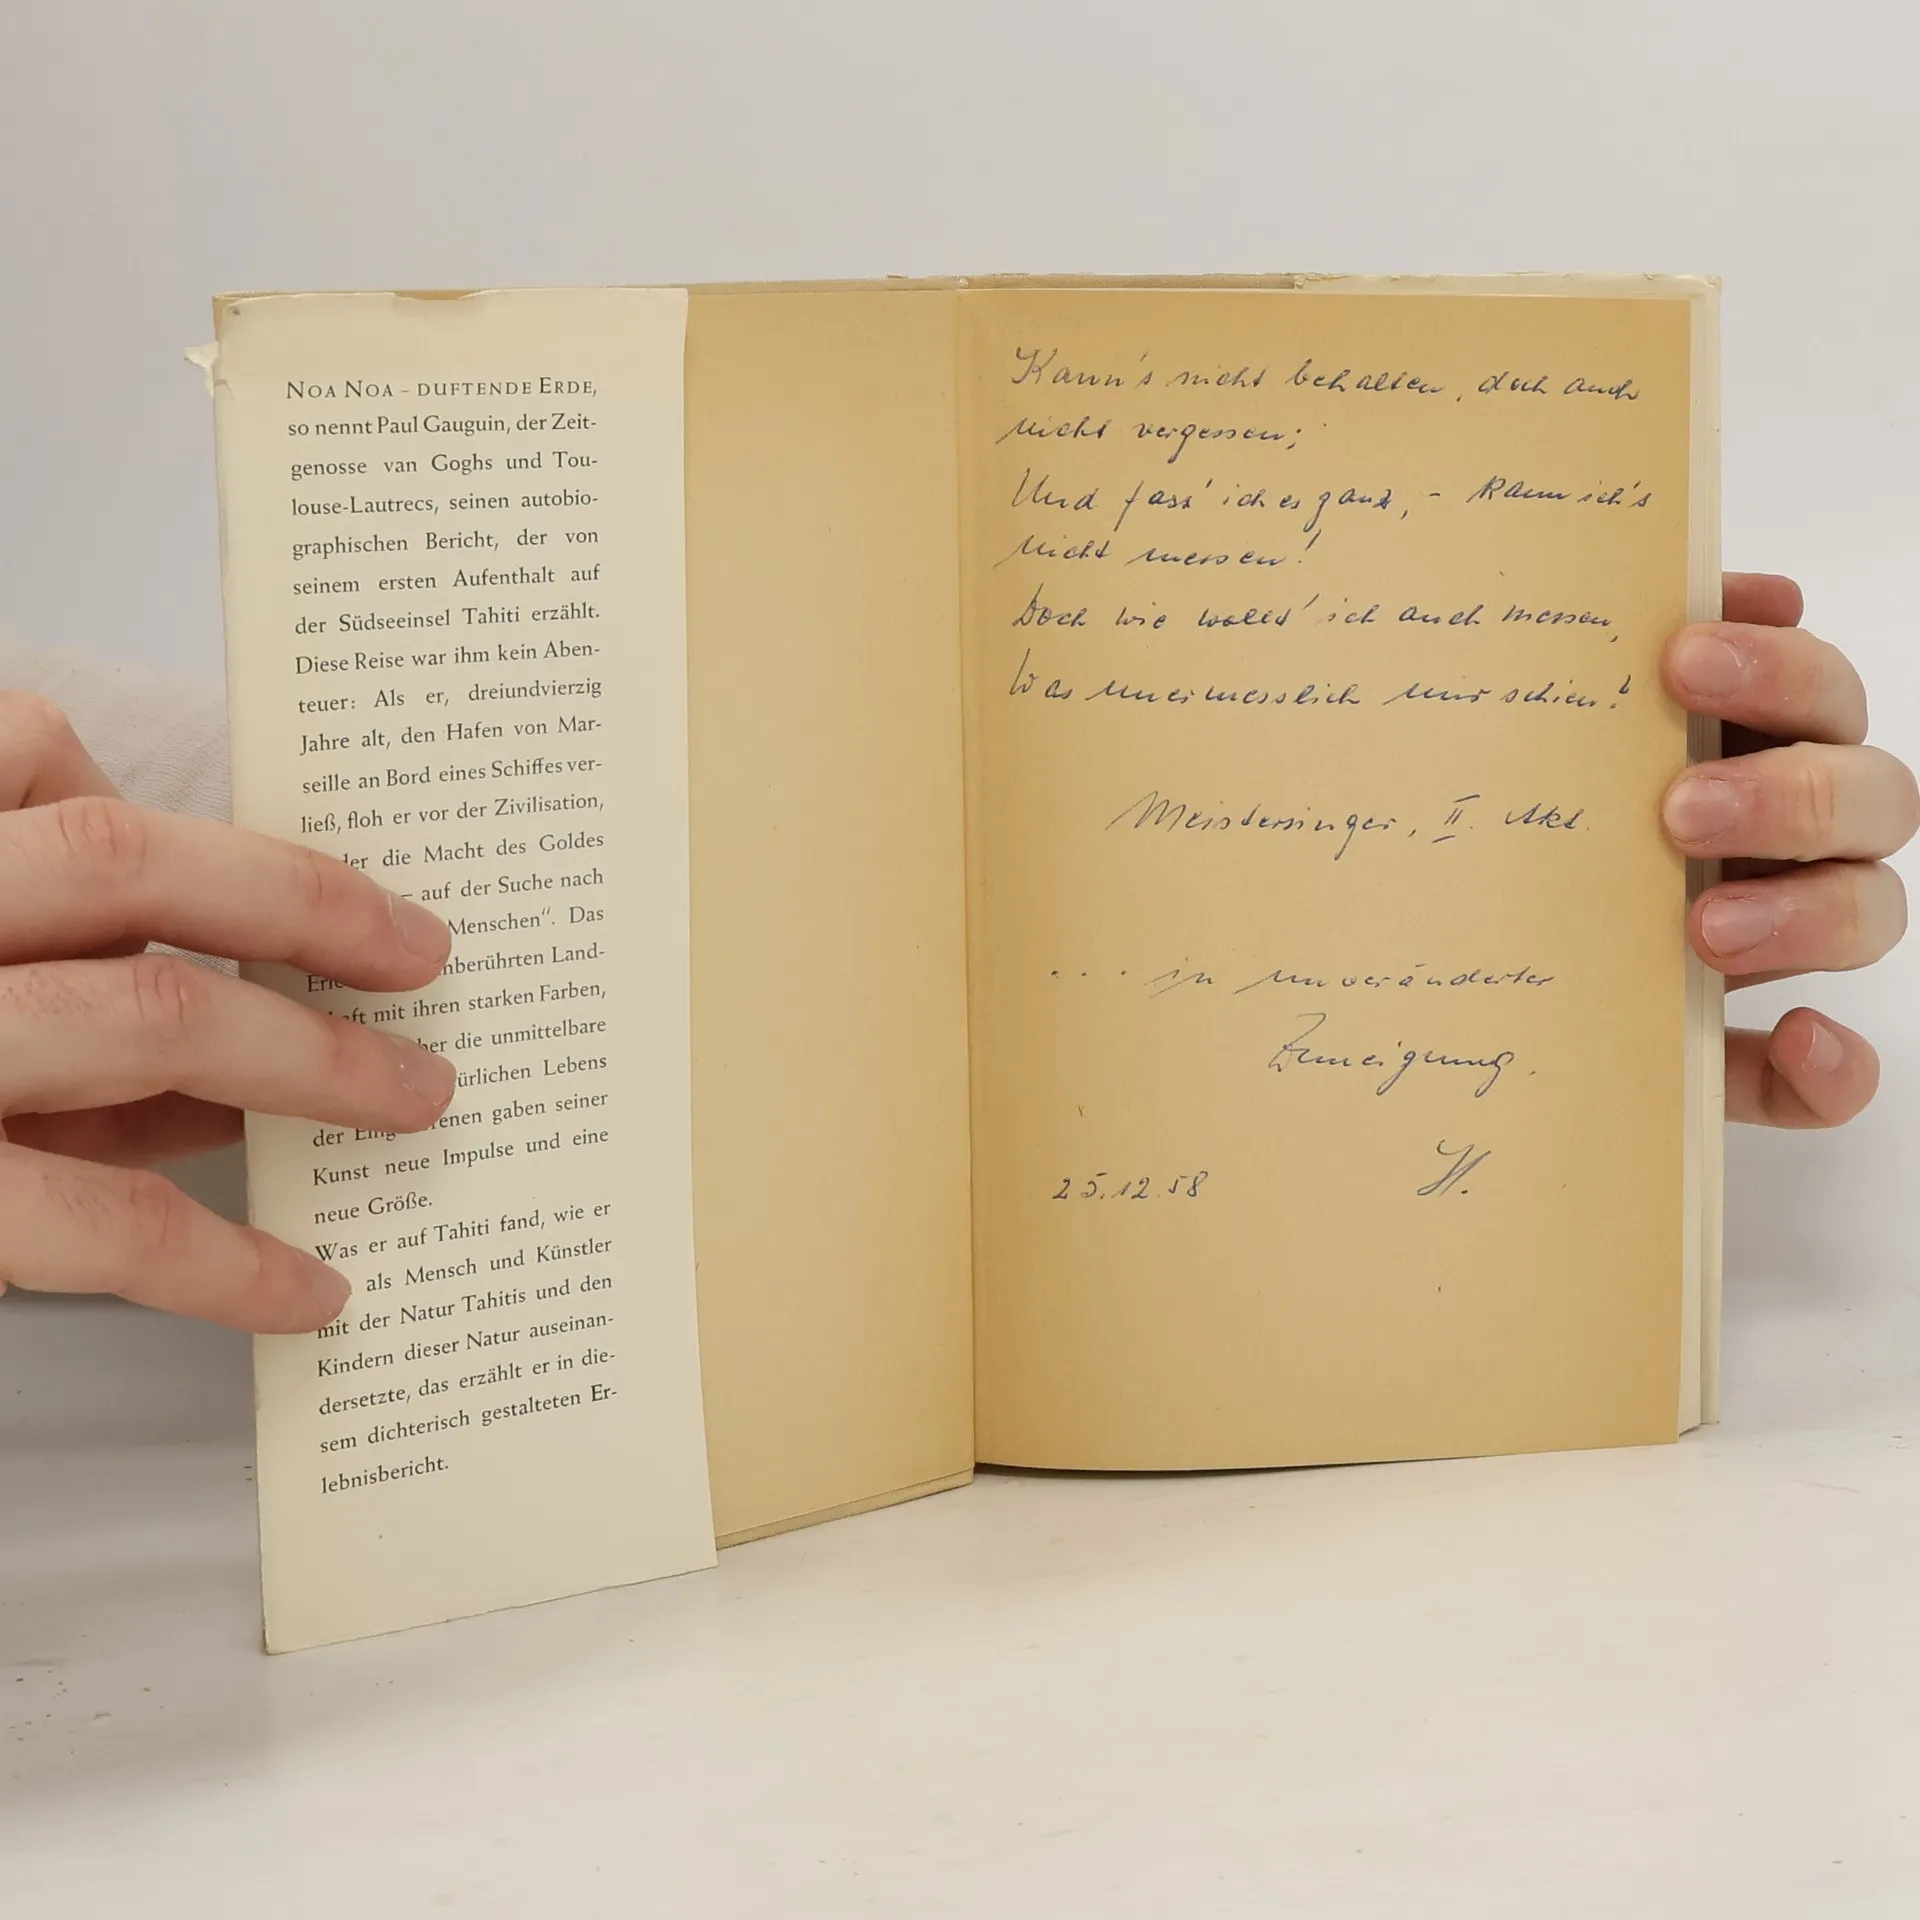 NOA NOA – DUFTENDE ERDE,
so nennt Paul Gauguin, der Zeit-
genosse van Goghs und Tou-
louse-Lautrecs, seinen autobio-
graphischen Bericht, der von
seinem ersten Aufenthalt auf
der Südseeinsel Tahiti erzählt.
Diese Reise war ihm kein Aben-
teuer: Als er, dreiundvierzig
Jahre alt, den Hafen von Mar-
seille an Bord eines Schiffes ver-
ließ, floh er vor der Zivilisation,
die Macht des Goldes
– auf der Suche nach
Menschen“. Das
Land-
mit ihren starken Farben,
die unmittelbare
Lebens
der gaben seiner
Kunst neue Impulse und eine
neue Größe.
Was er auf Tahiti fand, wie er
als Mensch und Künstler
mit der Natur Tahitis und den
Kindern dieser Natur auseinan-
dersetzte, das erzählt er in die-
sem dichterisch gestalteten Er-
lebnisbericht.
Kann's nicht behalten, doch auch
nicht vergessen;
Und fass' ich es ganz, – kann ich's
nicht messen!
Doch wie wollt' ich auch messen,
Was unermesslich mir schien?
Meistersinger, II. Akt.
... in unveränderter
Zuneigung.
25.12.58 H.